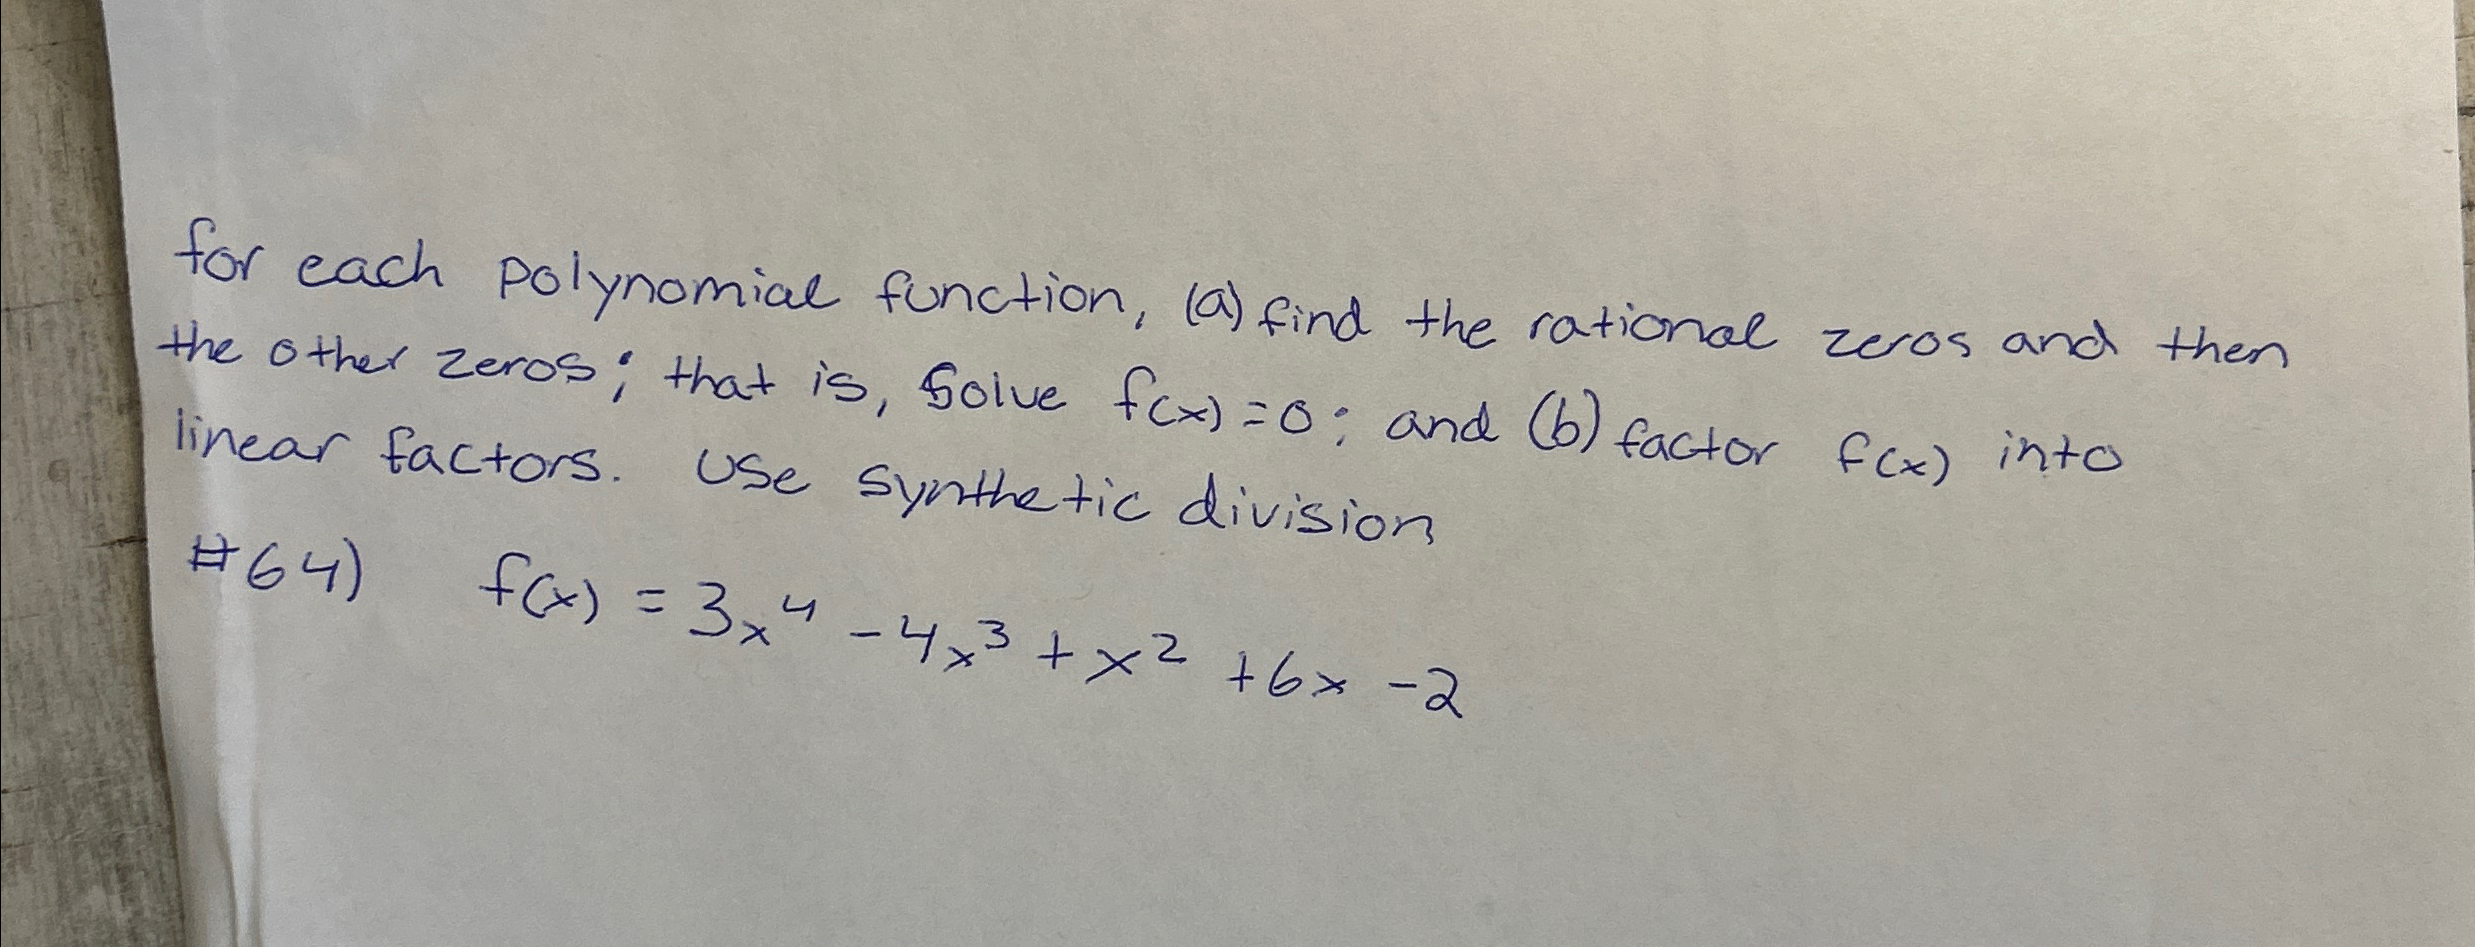 for each polynomial function, (a) find the rational zeros and then
the other zeros; that is, solve f(x)=0; and (b) factor f(x) into
linear factors. Use synthetic division
#64) f(x) = 3x⁴ -4x³ + x² +6x -2